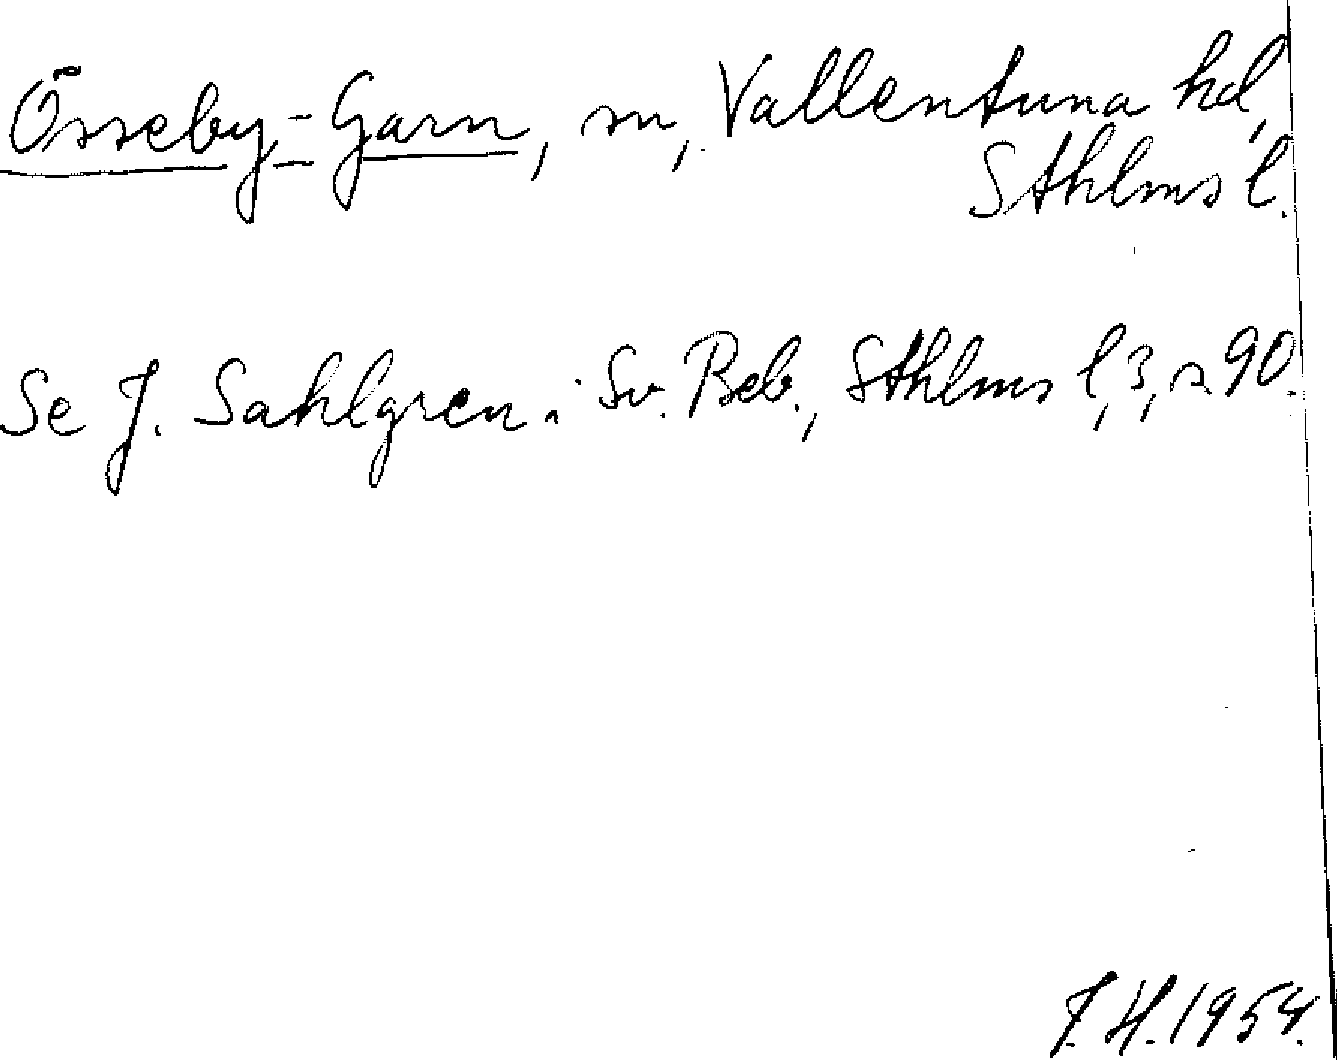 Össeby-Garn, sn, Vallentuna hd,
Sthlms l.
Se J. Sahlgren i Sv. Beb., Sthlms l, 3, s. 90.
J. H. 1954.